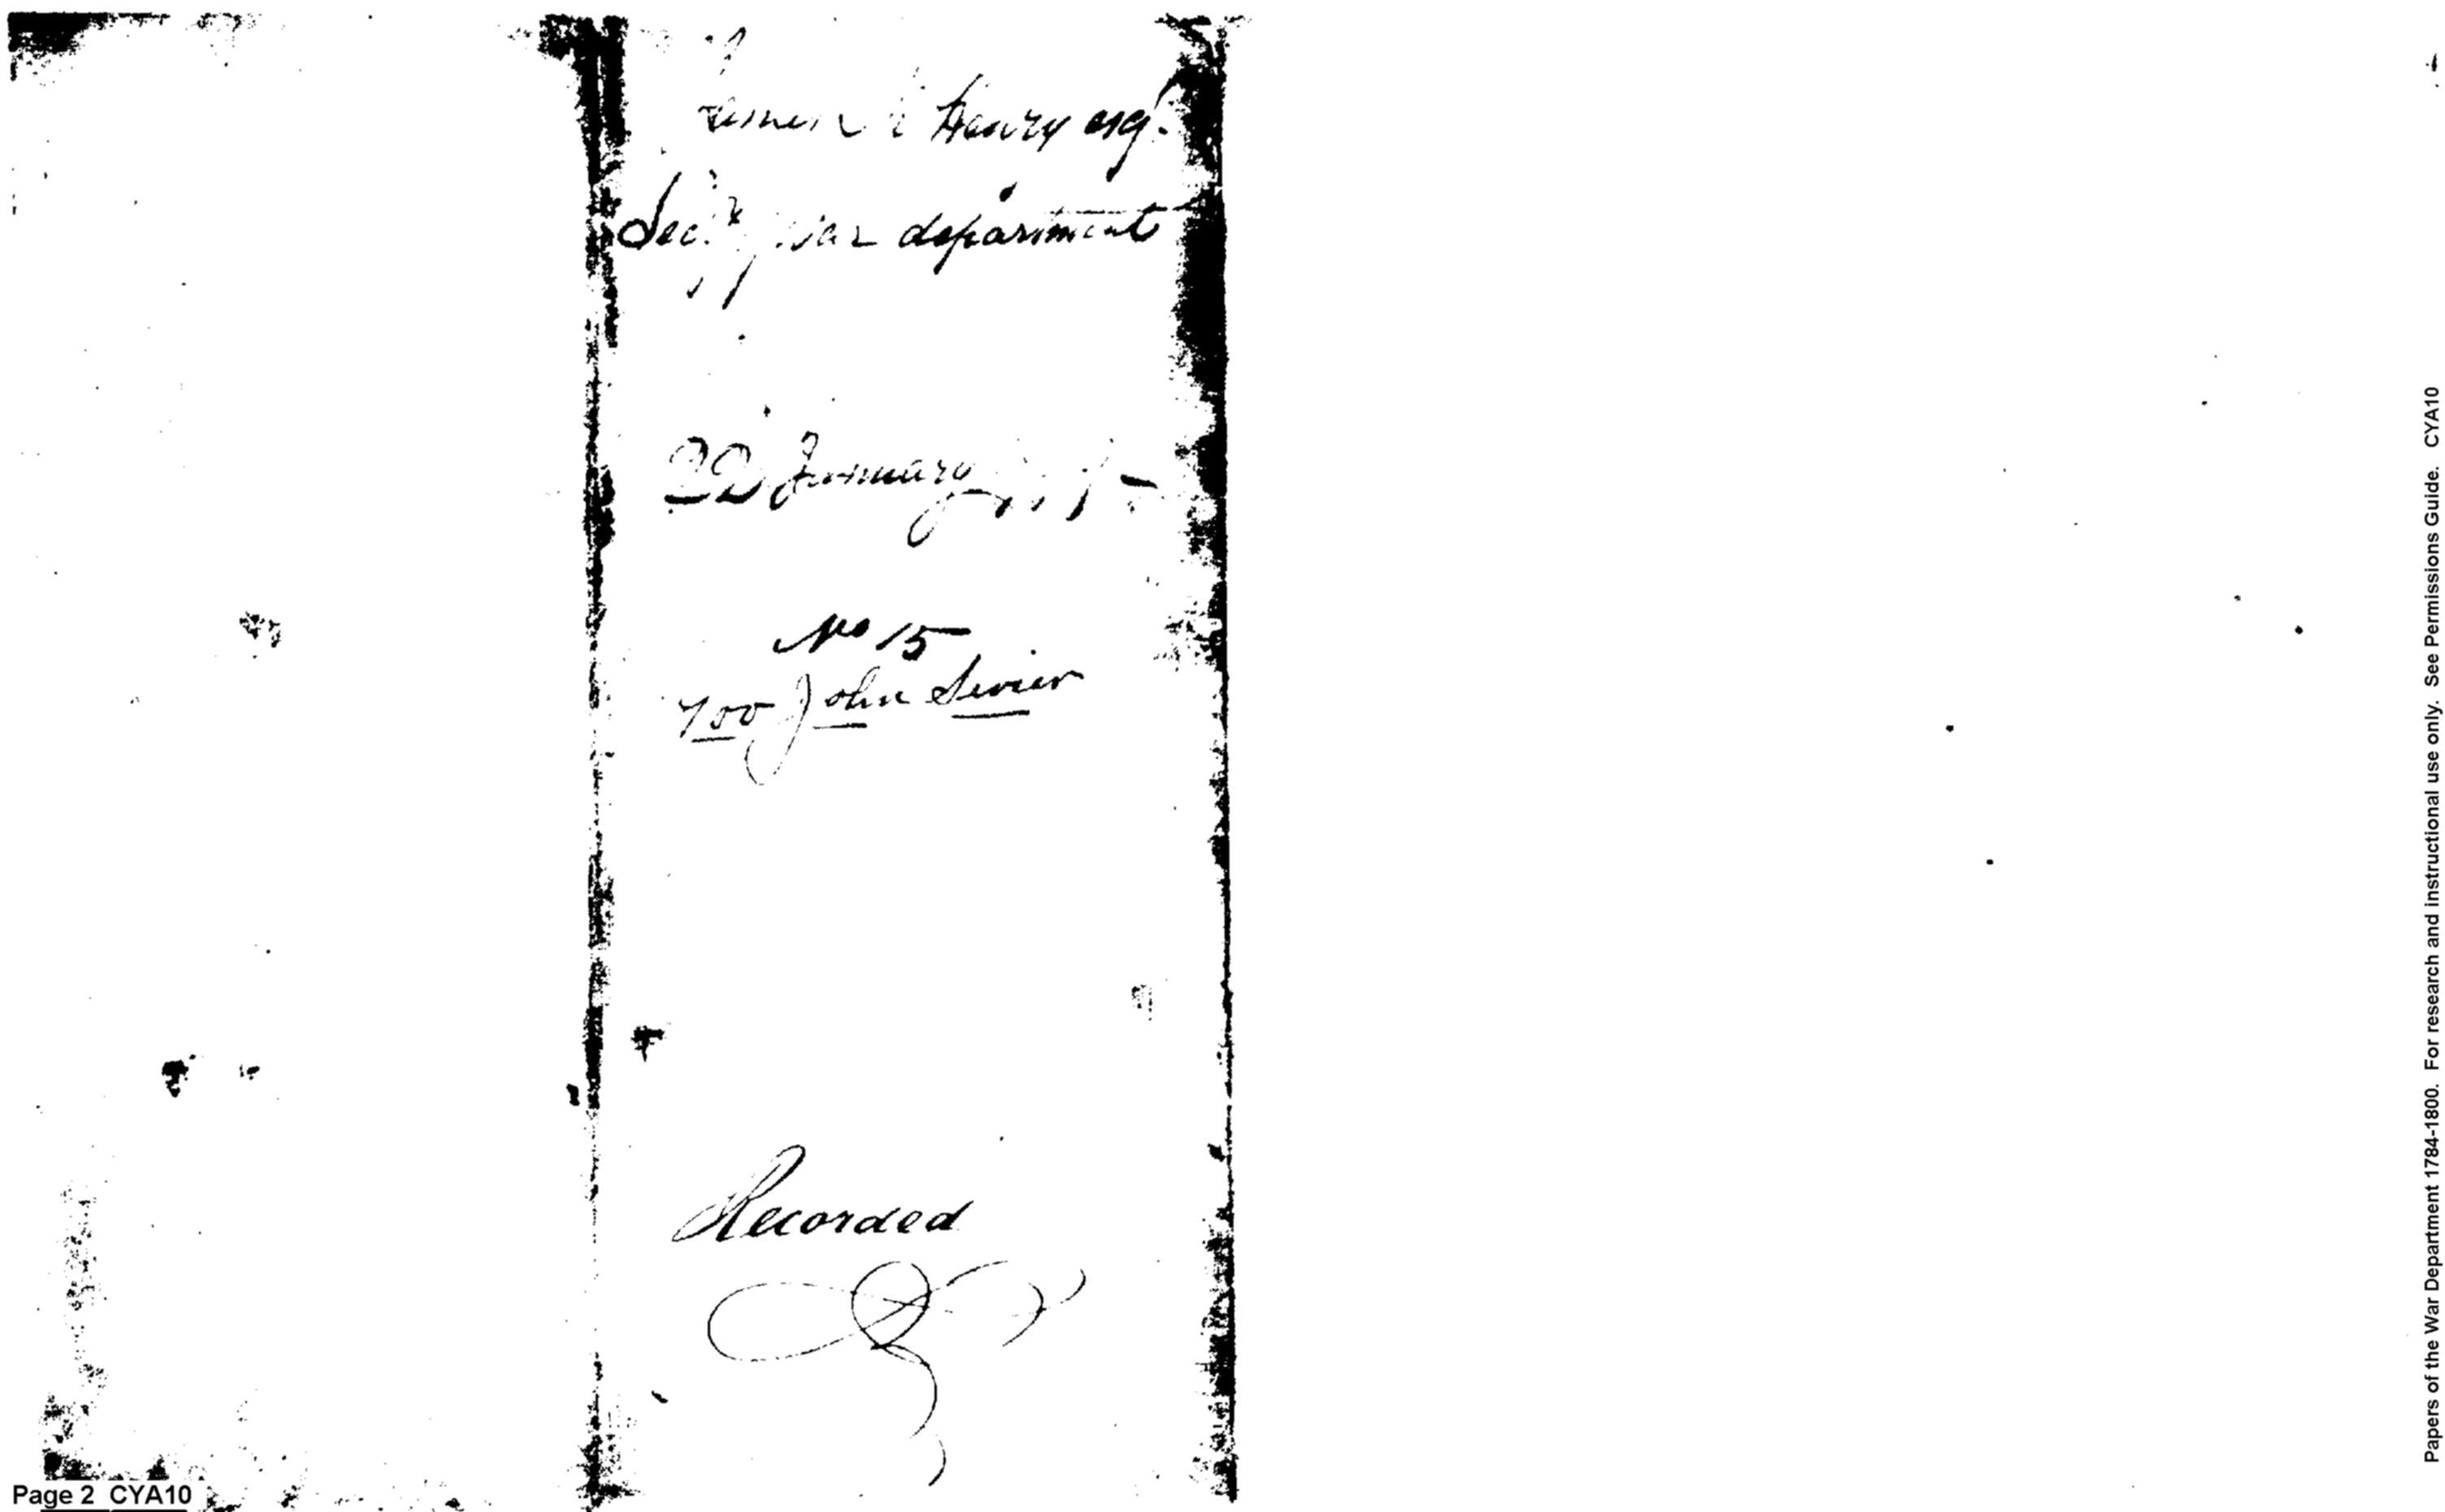 Henry esq.
Secy war department
22 January
No 15
700 John Sevier
Recorded
Page 2 CYA10
Papers of the War Department 1784-1800. For research and instructional use only. See Permissions Guide. CYA10